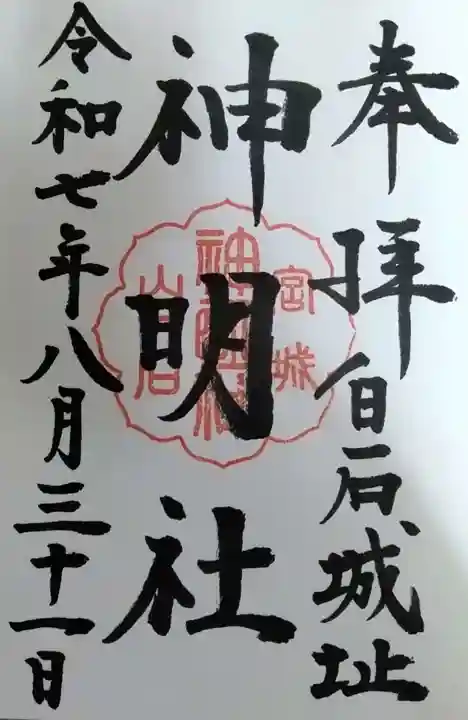 奉拝 白石城址
神明社
令和七年八月三十一日
宮城
白石